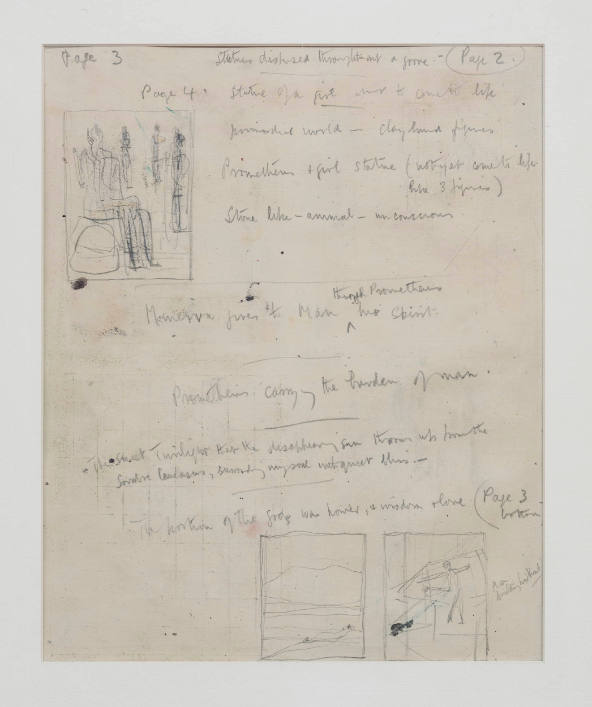 Page 3
Statues disposed throughout a grove - Page 2.
Page 4. Statue of a girl not to come to life
primordial world - clay hued figures
Prometheus + girl statue (not yet come to life
like 3 figures)
Stone like - animal - unconscious
through Prometheus
Minerva gives to Man his Spirit.
Prometheus carrying the burden of man.
The sweet Twilight that the disappearing sun throws up from the
Caucasus, my soul quiet bliss. -
portion of the gods was power, wisdom + love (Page 3
bottom